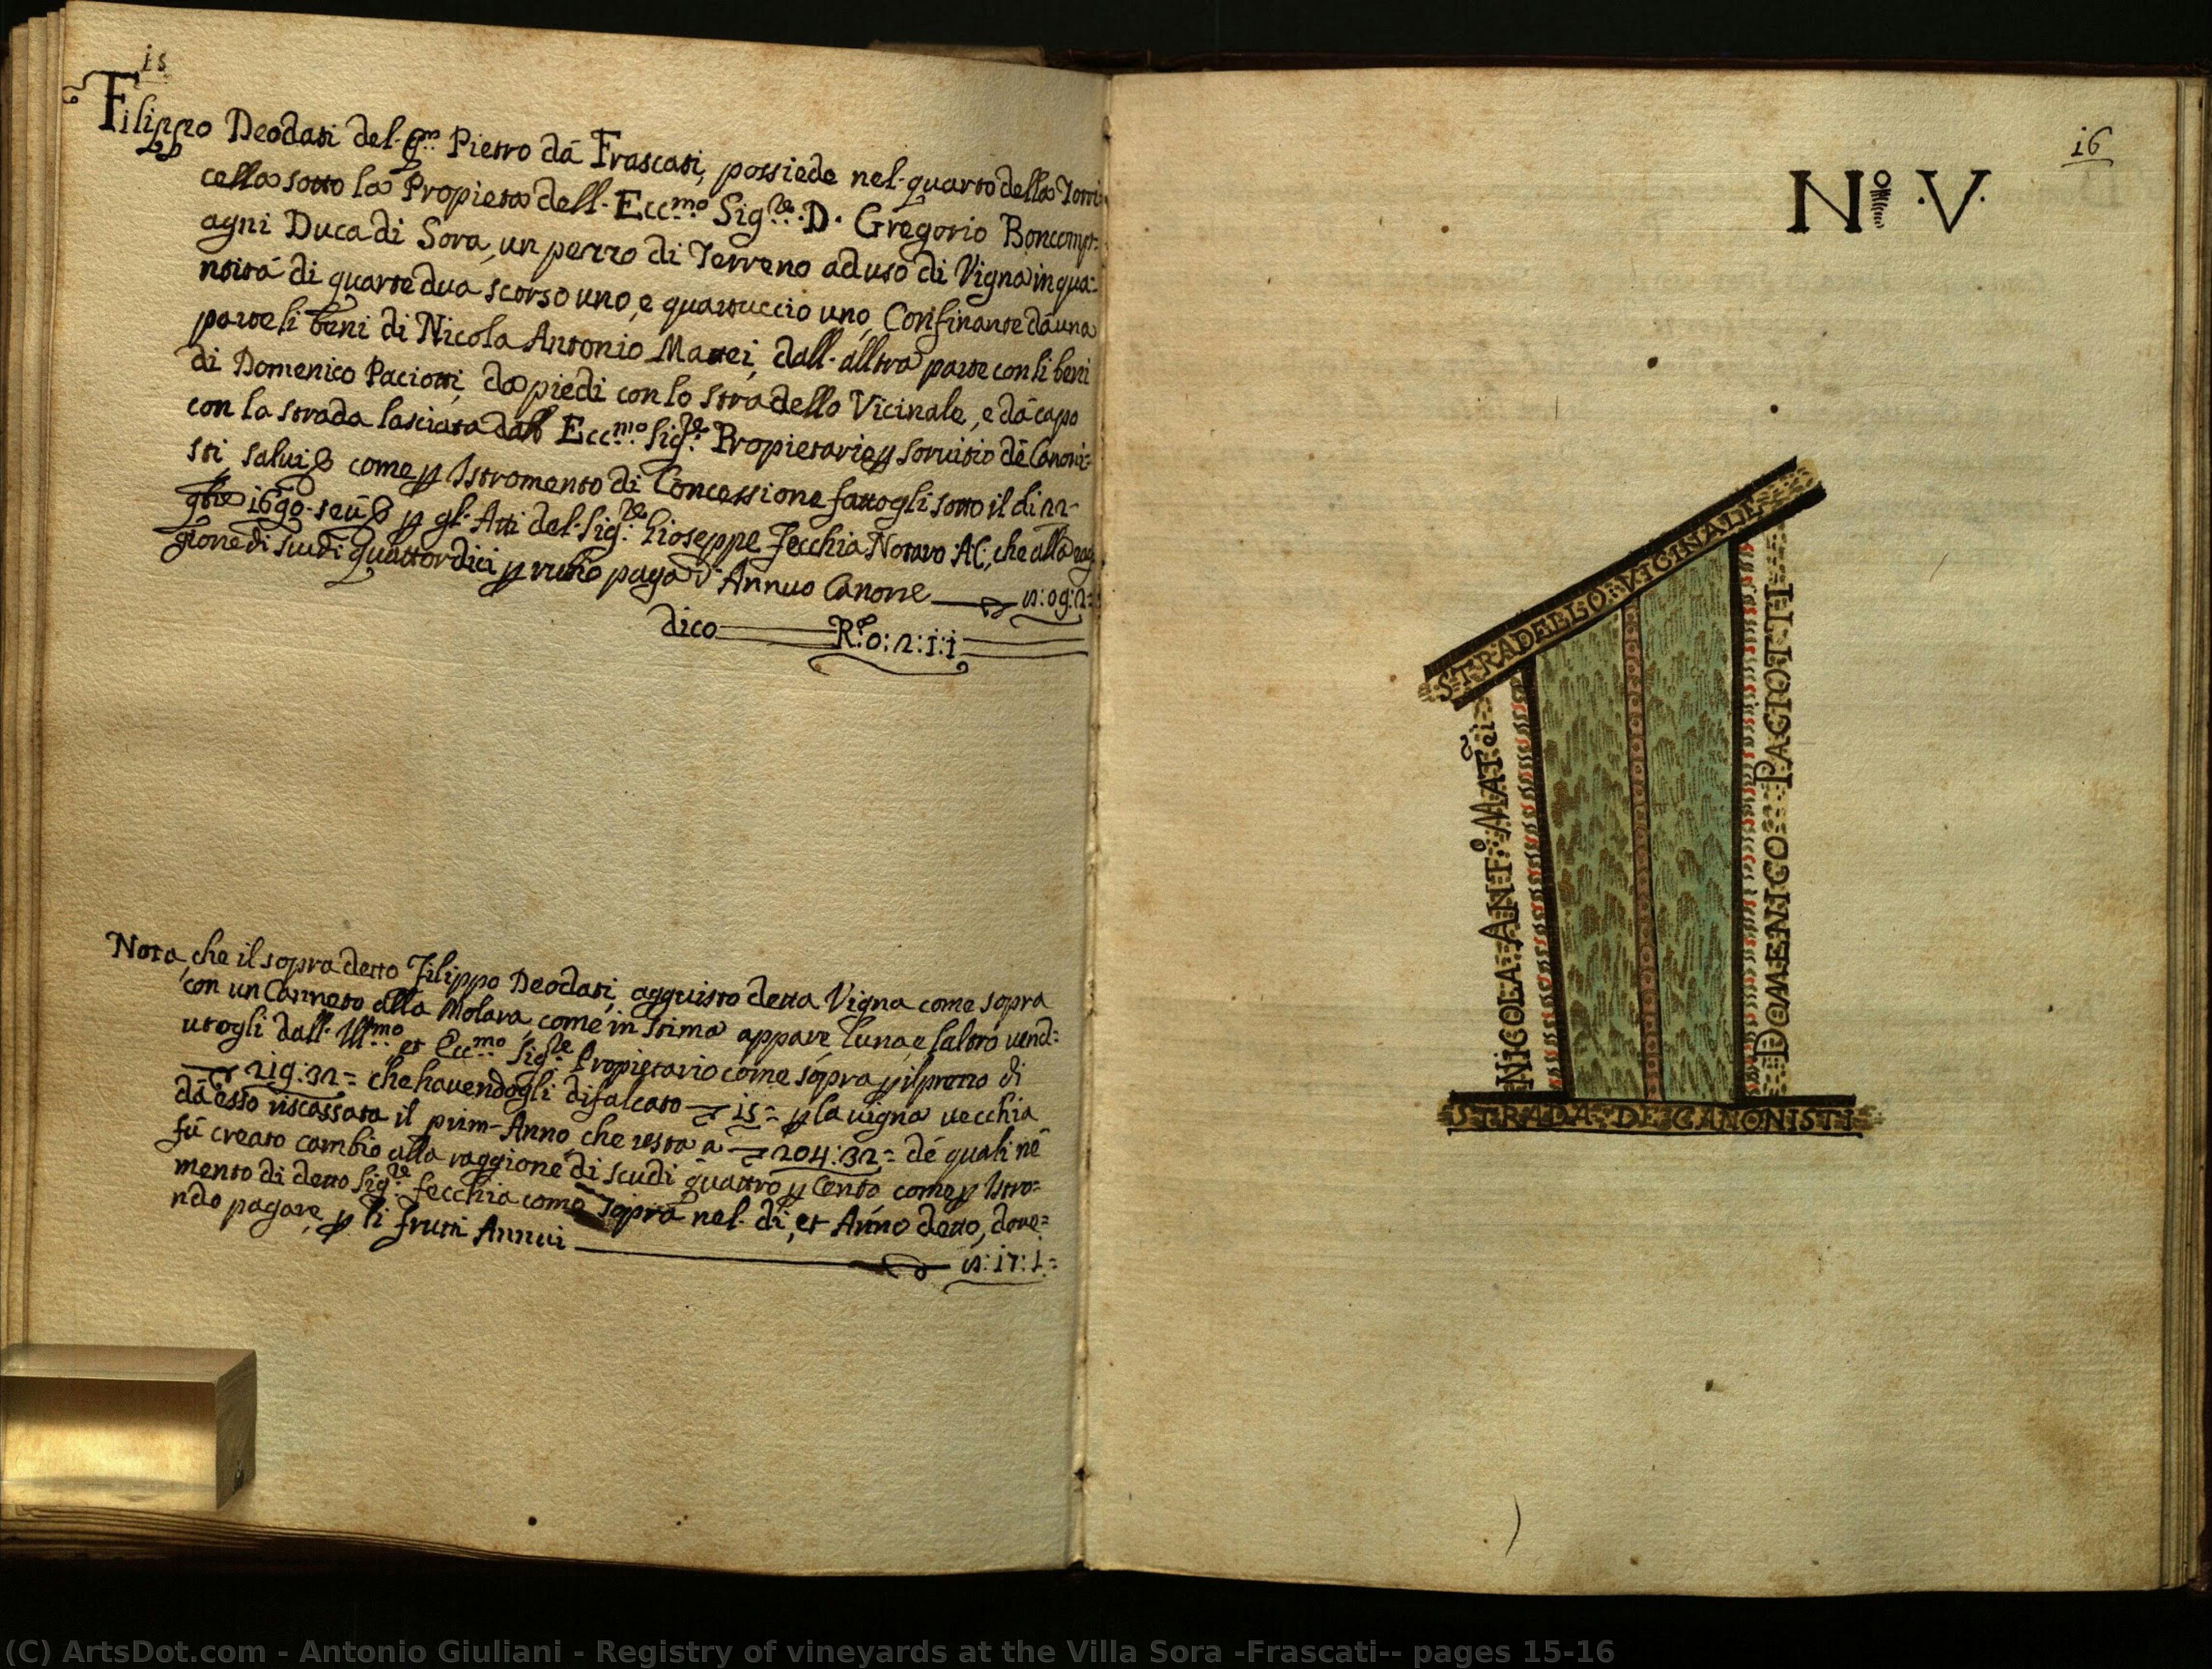 is
Filippo Deodati del qm Pietro dà Frascati, possiede nel quarto della Torri:
cella sotto la Propieta dell. Eccmo Sigre D. Gregorio Boncomp:
agni Duca di Sora, un pezzo di Terreno ad uso di Vigna in qua:
ntità di quarte dua scorso uno, e quartuccio uno, Confinante dà una
parte li beni di Nicola Antonio Mattei, dall. alltra parte con li beni
di Domenico Paciotti, da piedi con lo stradello Vicinale, e dà capo
con la strada lasciata dall Eccmo Sigre Propietario p servitio dè Canoni:
sti salui & come p Istromento di Concessione fattogli sotto il di 22
1690. seù & p gl. Atti del. Sigre Gioseppe Fecchia Notaro AC, che alla rag
gione di scudi quattordici p rubio paga d'Annuo Canone s: 09: 2
dico R.o 0: 2: i: i
Nota, che il sopra detto Filippo Deodati, acquisto detta Vigna come sopra
con un Canneto alla Molara, come in stima appare l'una, e l'altro vend:
utogli dall. Illmo et Eccmo Sigre Propietario come sopra p il prezzo di
219: 32 = che havendogli difalcato is = p la vigna vecchia
dà esso riscassata il prim- Anno, che resta a 204: 32 = dè quali nè
fù creato cambio alla raggione di scudi quattro p Cento come p Istro:
mento di detto Sigre Fecchia come sopra nel. di, et Anno detto, dove:
ndo pagare p li frutti Annui s: i7: 1 =
i6
No .V.
STRADELLO VICINALE
NICOLA ANTo MATei
DOMENICO PACIOTTI
STRADA DE CANONISTI
(C) ArtsDot.com - Antonio Giuliani - Registry of vineyards at the Villa Sora -Frascati-- pages 15-16